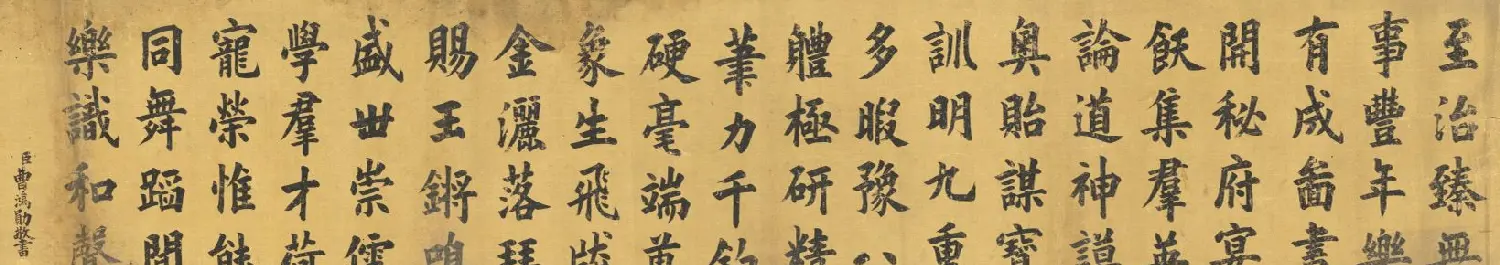 至治臻無
事豐年樂
有成啚書
開秘府宴
飫集羣英
論道神謨
奥貽謀寶
訓明九重
多暇豫八
體極研精
筆力千鈞
硬毫端萬
象生飛龍
金灑落琵
賜王鏘鳴
盛世崇儒
學羣才荷
寵榮惟能
同舞蹈間
樂識和聲
臣曹鴻勛敬書